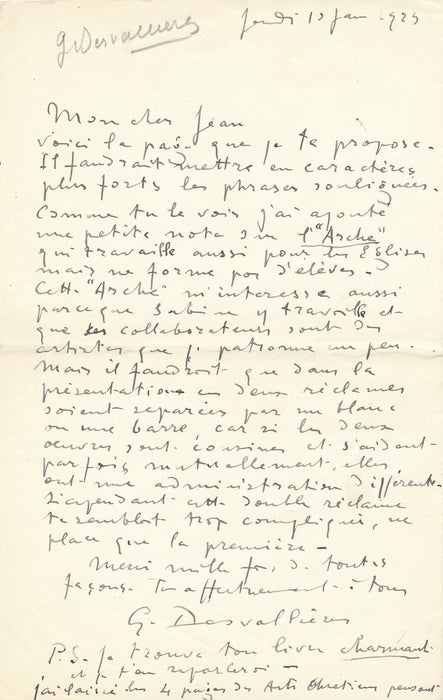 G. Desvallières
Jeudi 1 Jan 1925
Mon cher Jean
Voici la page que je te propose.
Il faudrait mettre en caractères
plus forts les phrases soulignées.
Comme tu le vois j'ai ajouté
une petite note sur l'"Arche"
qui travaille aussi pour les Eglises
mais ne forme pas d'élèves -
Cette "Arche" m'interesse aussi
parceque Sabine y travaille et
que les collaborateurs sont des
artistes que je patronne un peu.
Mais il faudrait que dans la
présentation en deux réclames
soient separées par un blanc
ou une barre, car si les deux
oeuvres sont cousines et s'aident
parfois mutuellement, elles
ont une administration différente.
Si cependant cette double réclame
te semblait trop compliquée, ne
place que la première -
Merci mille fois de toutes
façons. Ton affectueusement à tous
G. Desvallières
P.S. Je trouve ton livre charmant
et je t'en reparlerai -
j'ai laissé les 4 pages des Arts Chrétiens pensant